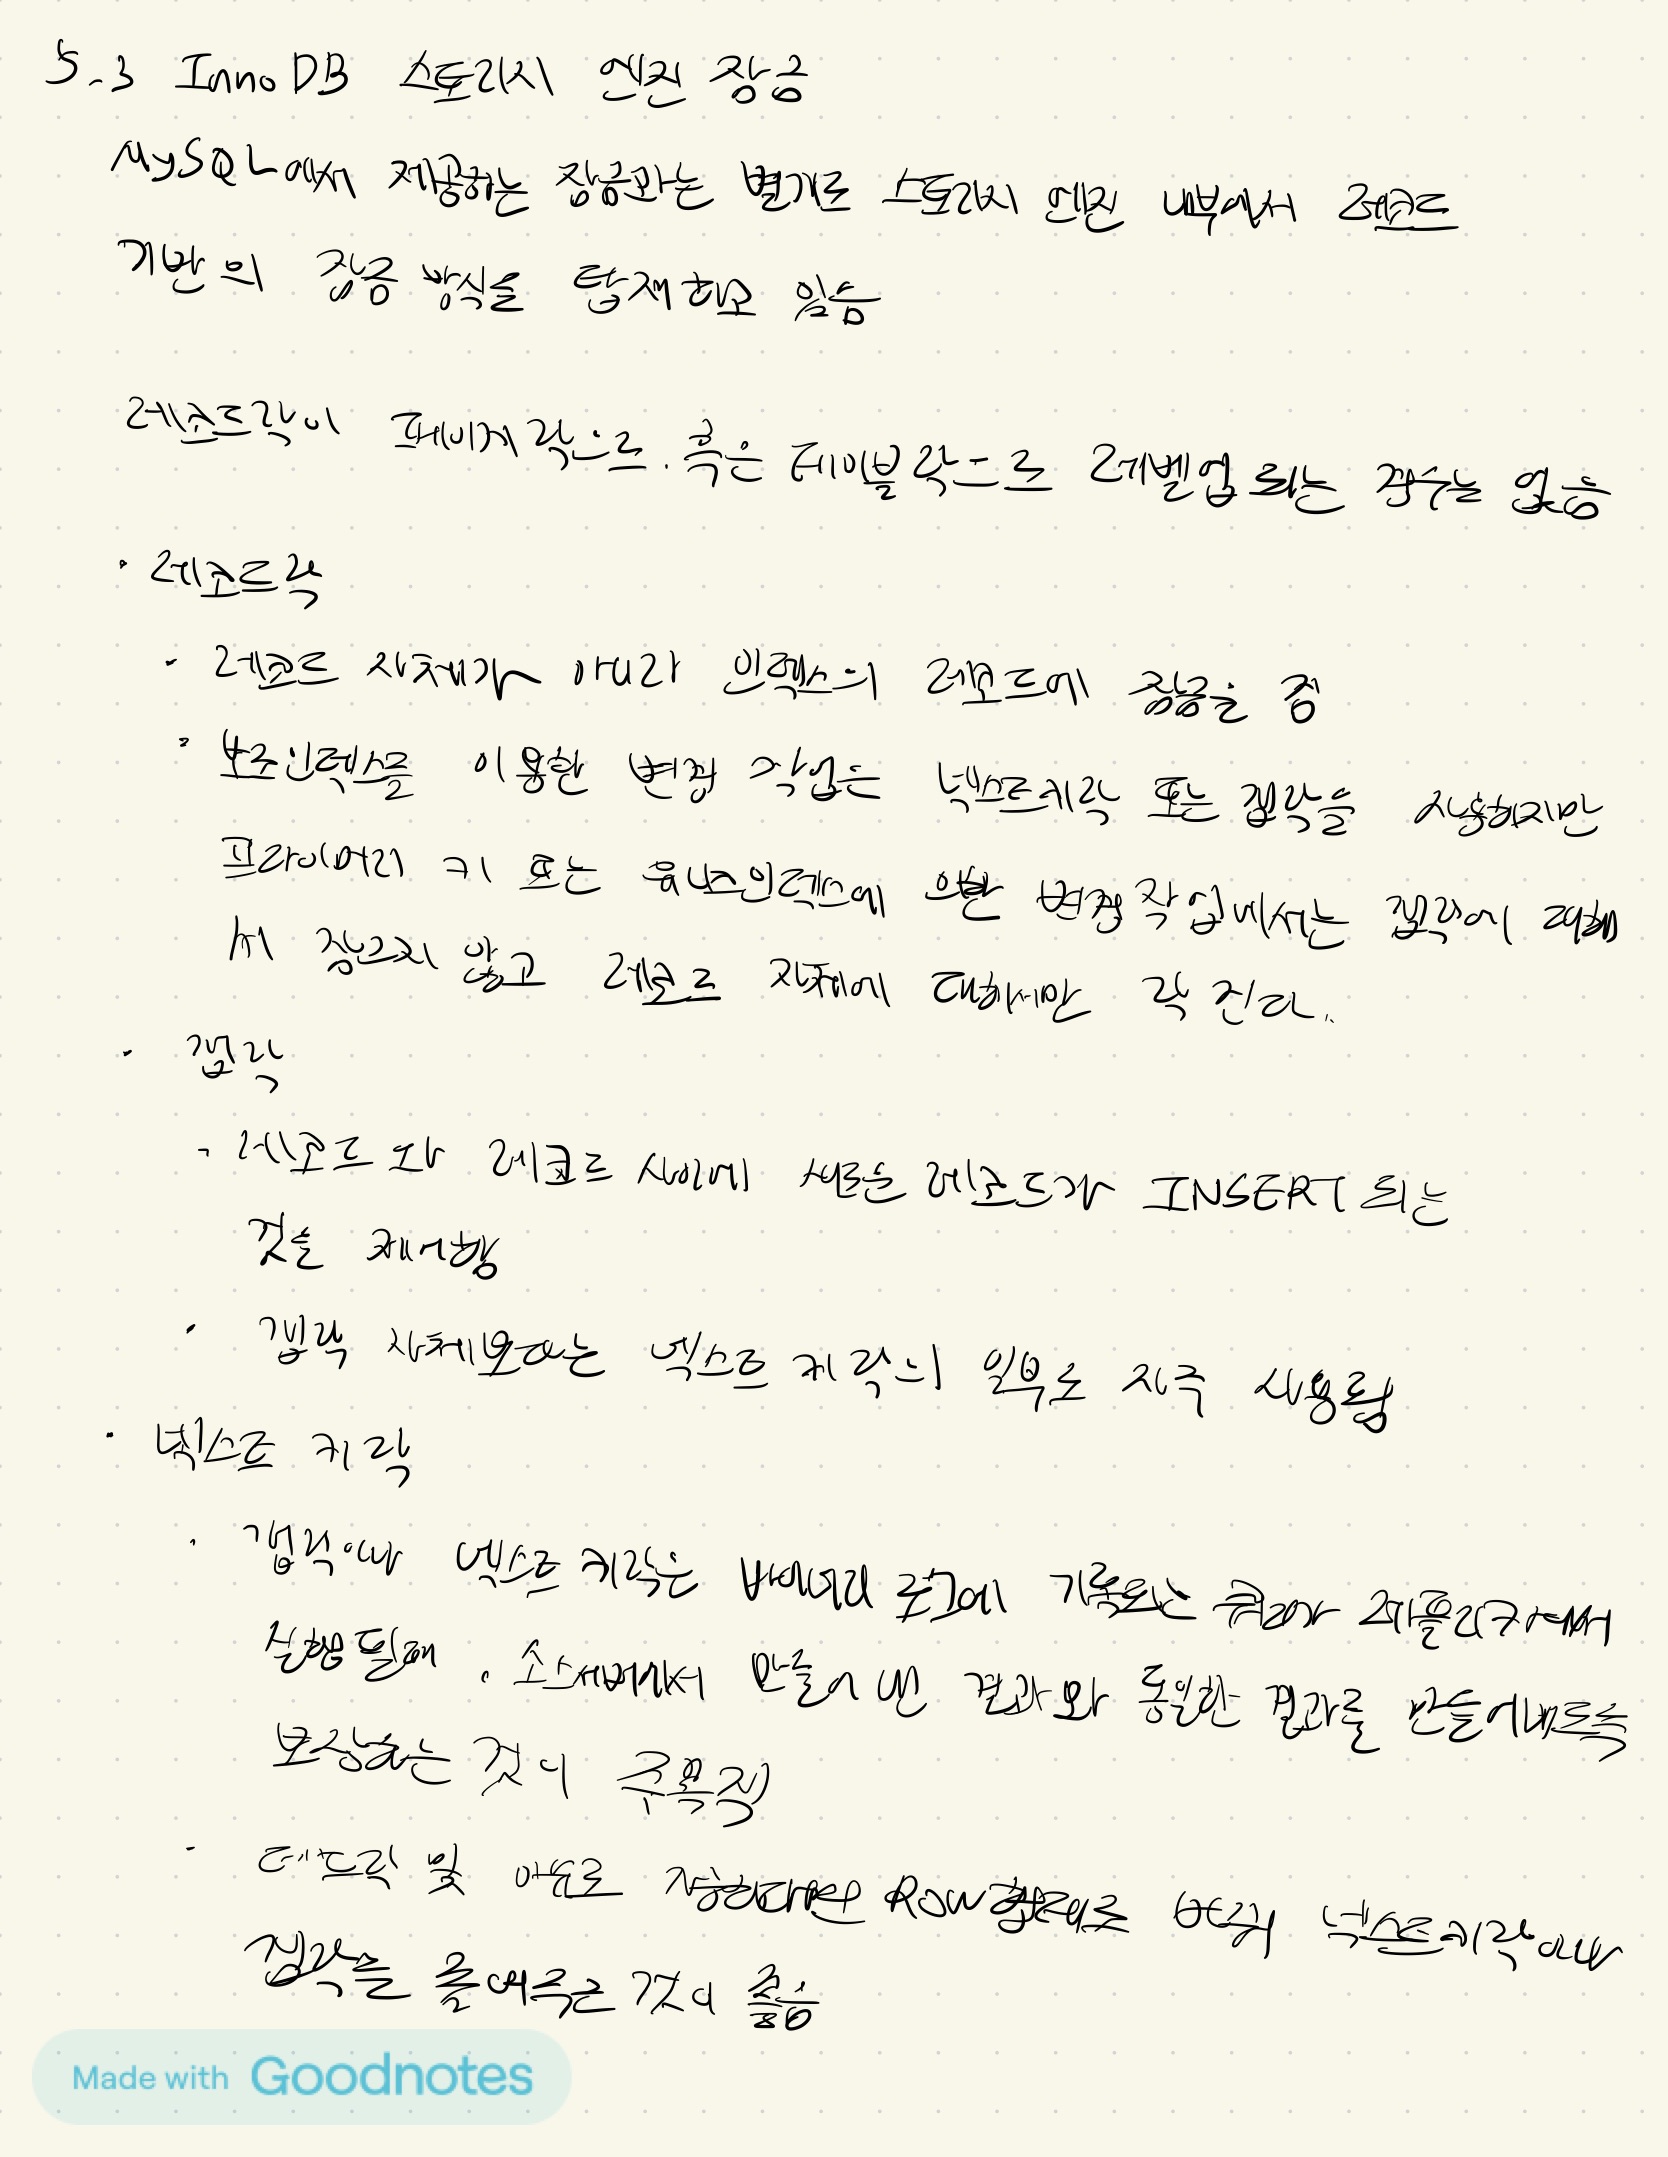 5.3 InnoDB 스토리지 엔진 잠금
MySQL에서 제공하는 잠금과는 별개로 스토리지 엔진 내부에서 레코드
기반의 잠금 방식을 탑재하고 있음
레코드락이 페이지락으로, 혹은 테이블락으로 레벨업되는 경우는 없음
· 레코드락
· 레코드 자체가 아니라 인덱스의 레코드에 잠금을 검
· 보조인덱스를 이용한 변경 작업은 넥스트키락 또는 갭락을 사용하지만
프라이머리 키 또는 유니크인덱스에 의한 변경작업에서는 갭락에 대해
서 잠그지 않고 레코드 자체에 대해서만 락 건다.
· 갭락
- 레코드와 레코드 사이에 새로운 레코드가 INSERT 되는
것을 제어함
· 갭락 자체보다는 넥스트 키락의 일부로 자주 사용됨
· 넥스트 키락
· 갭락이나 넥스트 키락은 바이너리 로그에 기록되는 쿼리가 레플리카에서
실행될때, 소스서버에서 만들어 낸 결과와 동일한 결과를 만들어내도록
보장하는 것이 주목적
- 데드락 및 이유로 가능하다면 ROW형태로 바꿔 넥스트키락이나
갭락을 줄여주는 것이 좋음
Made with Goodnotes